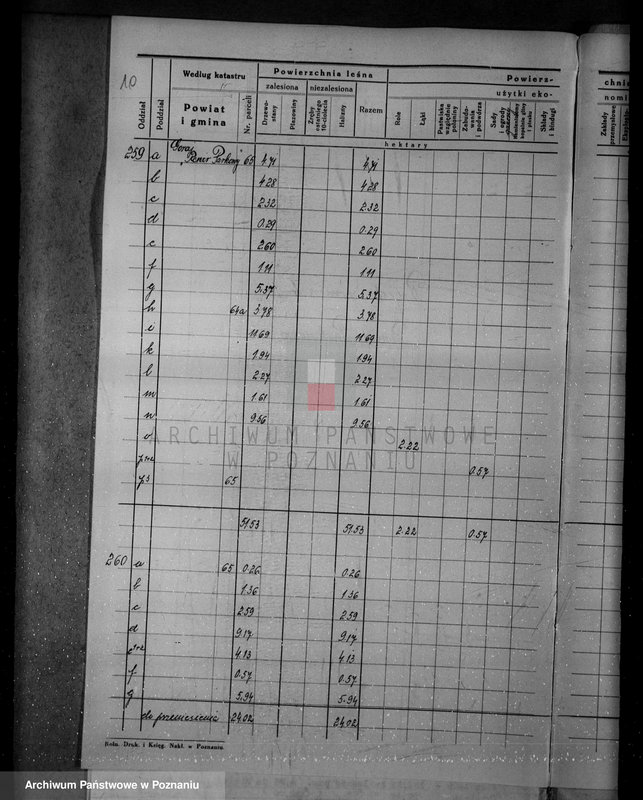 10
Oddział Poddział Według katastru Powiat i gmina Nr. parceli Powierzchnia leśna zalesiona Drzewostany Płazowiny niezalesiona Zręby ostatniego 10-ciolecia Halizny Razem Powierz-
użytki eko- Role Łąki Pastwiska względnie połoniny Zabudowania i podwórza Sady i ogrody Składy i bindugi
chni
nomi
Zakłady przemysłowe
hektary
259 a 65 4.71 4.71
b 4.28 4.28
c 2.32 2.32
d 0.29 0.29
e 2.60 2.60
f 1.11 1.11
g 5.37 5.37
h 64a 3.78 3.78
i 11.69 11.69
k 1.94 1.94
l 2.27 2.27
m 1.61 1.61
n 9.56 9.56
o 2.22
0.57
65
51.53 51.53 2.22 0.57
260 a 65 0.26 0.26
b 1.36 1.36
c 2.59 2.59
d 9.17 9.17
4.13 4.13
f 0.57 0.57
g 5.94 5.94
do przeniesienia 24.02 24.02
Roln. Druk. i Księg. Nakł. w Poznaniu
ARCHIWUM PAŃSTWOWE
W POZNANIU
Archiwum Państwowe w Poznaniu